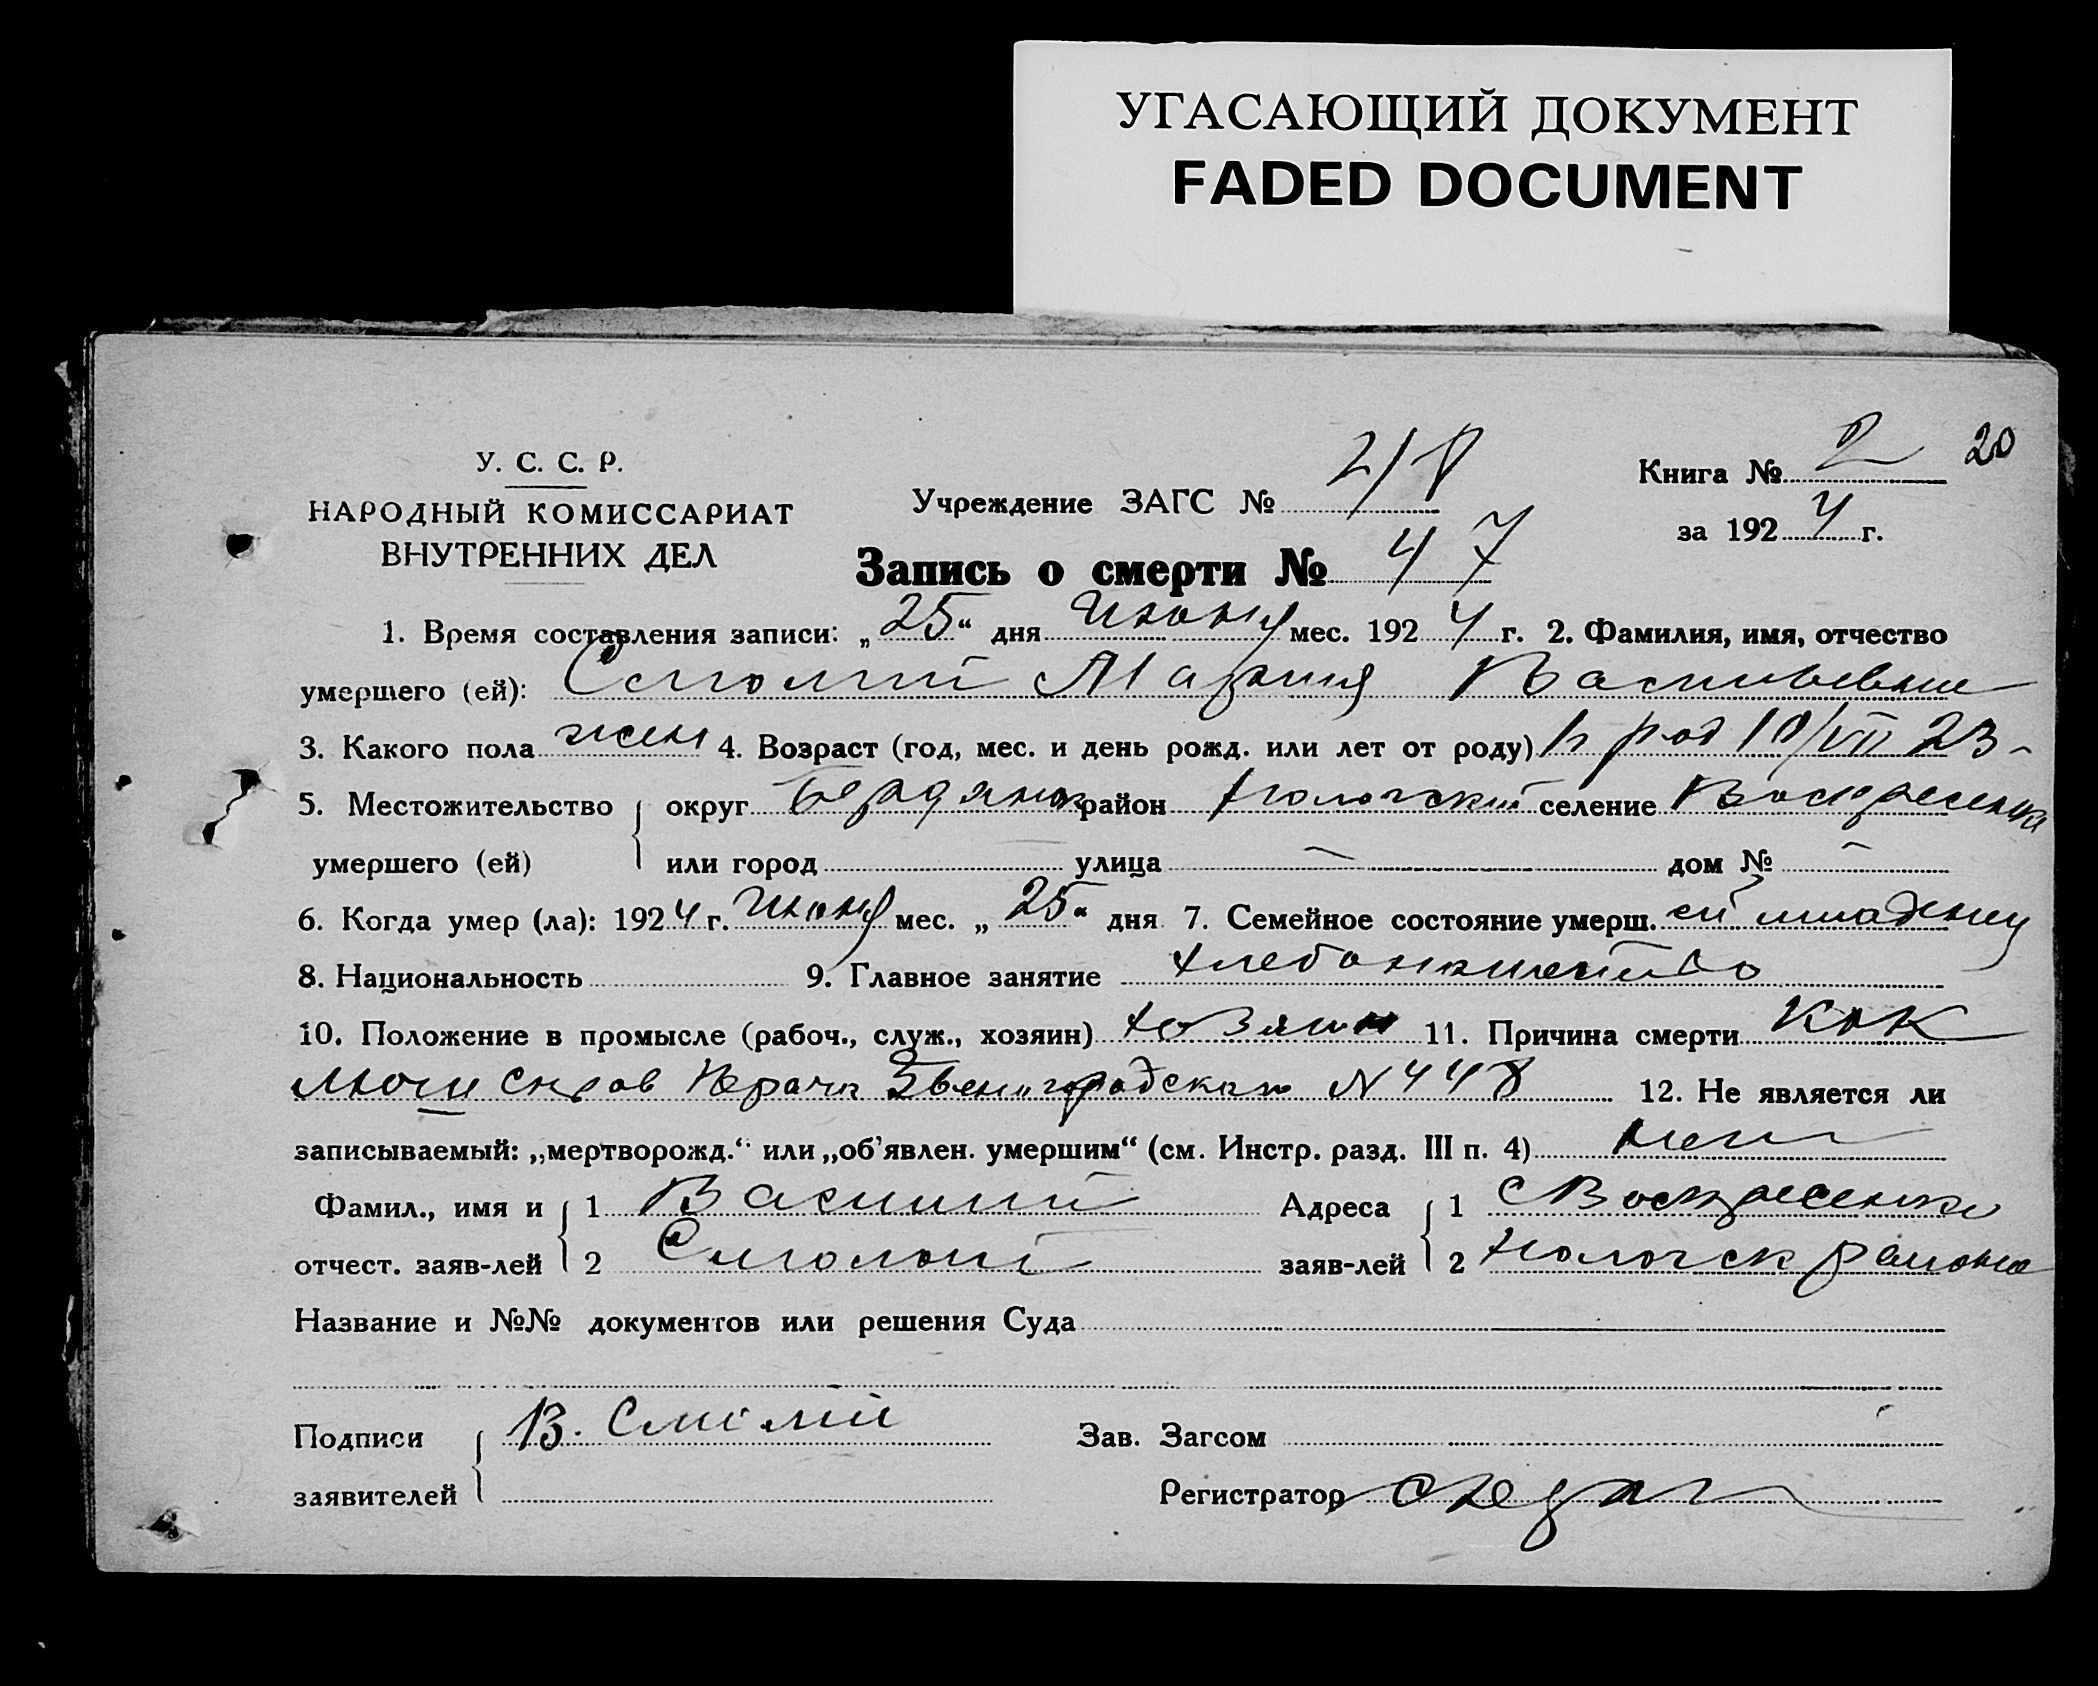 УГАСАЮЩИЙ ДОКУМЕНТ
FADED DOCUMENT
У. С. С. Р.
НАРОДНЫЙ КОМИССАРИАТ
ВНУТРЕННИХ ДЕЛ
Учреждение ЗАГС № 218
Книга № 2 20
за 1924 г.
Запись о смерти № 47
1. Время составления записи: „25“ дня Июня мес. 1924 г. 2. Фамилия, имя, отчество
умершего (ей): Смолий Мария Васильевна
3. Какого пола жен 4. Возраст (год, мес. и день рожд. или лет от роду) род 10/VII 23
5. Местожительство округ Бердянск район Пологский селение Воскресенка
умершего (ей) или город улица — дом № —
6. Когда умер (ла): 1924 г. Июня мес. „25“ дня 7. Семейное состояние умерш. ей младенец
8. Национальность 9. Главное занятие хлебопашество
10. Положение в промысле (рабоч., служ., хозяин) хозяин 11. Причина смерти Кок
люш справ Врача Звенигородского N 448 12. Не является ли
записываемый: „мертворожд.“ или „об'явлен. умершим“ (см. Инстр. разд. III п. 4) нет
Фамил., имя и 1 Василий Адреса 1 с Воскресенка
отчест. заяв-лей 2 Смолий заяв-лей 2 Пологск района
Название и №№ документов или решения Суда
Подписи В. Смолий Зав. Загсом
заявителей Регистратор